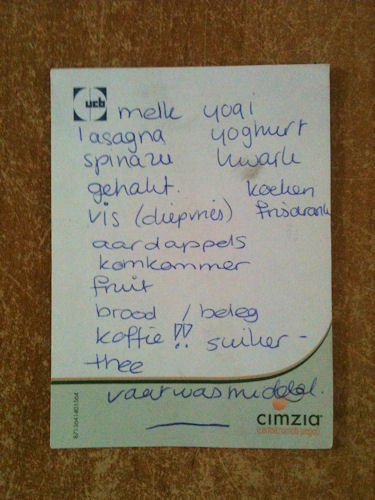 ucb
melk yogi
lasagna yoghurt
spinazie kwark
gehakt. koeken
vis (diepvries) frisdrank
aardappels
komkommer
fruit
brood / beleg
koffie !! suiker -
thee
vaatwasmiddel.
cimzia
(certolizumab pegol)